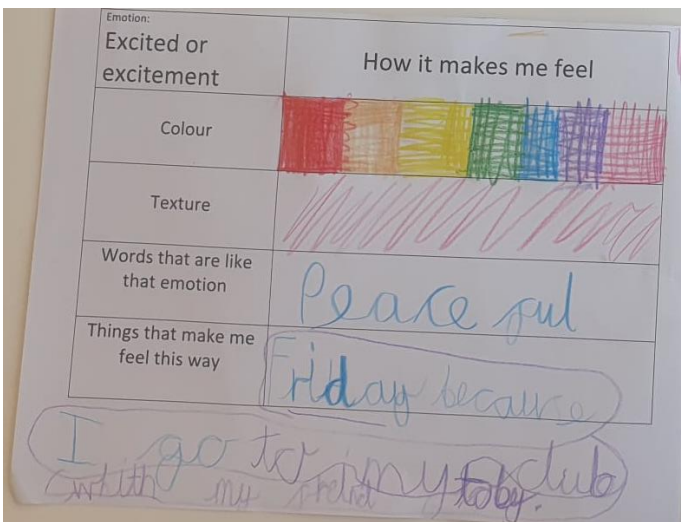 Emotion:
Excited or
excitement
How it makes me feel
Colour
Texture
Words that are like
that emotion
Peaceful
Things that make me
feel this way
Friday because
I go to my club
whith my toby.